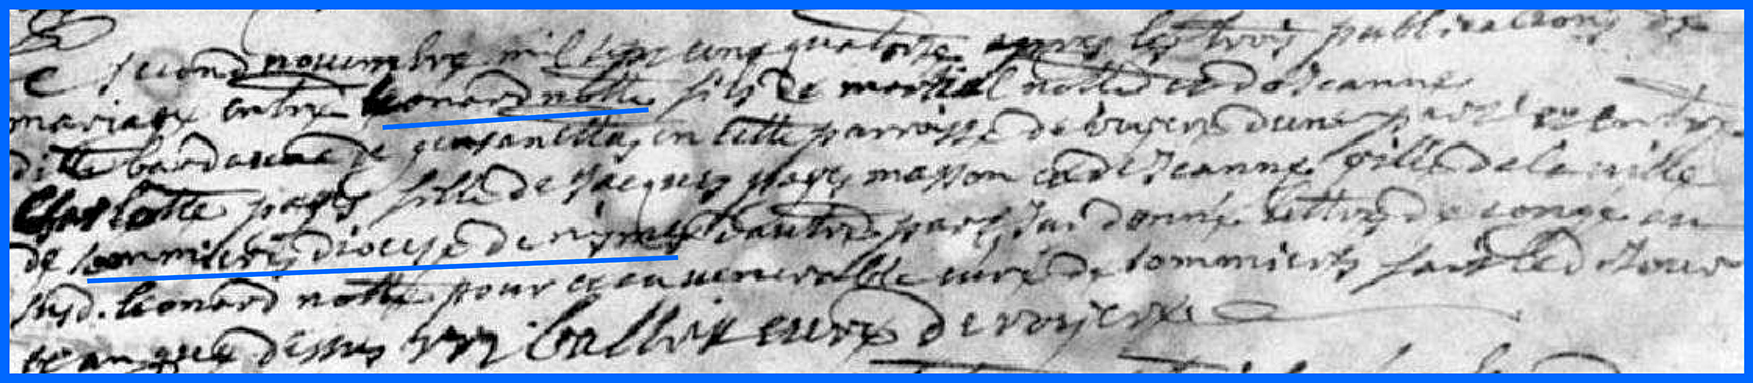 Ce second novembre mil sept cens quatorze apres les trois publications de
mariage entre leonard notte fils de martial notte et de Jeanne
dite bardaune de en cette parroisse de d'une part et entre
Charlotte pages fille de Jacques pages masson et de Jeanne gille de la ville
de Sommieres diocese de nismes d'autre part J'ai donné lettre de congé au
susd. leonard notte pour venerable curé de Sommieres fait led. Jour
et an que dessus curé de